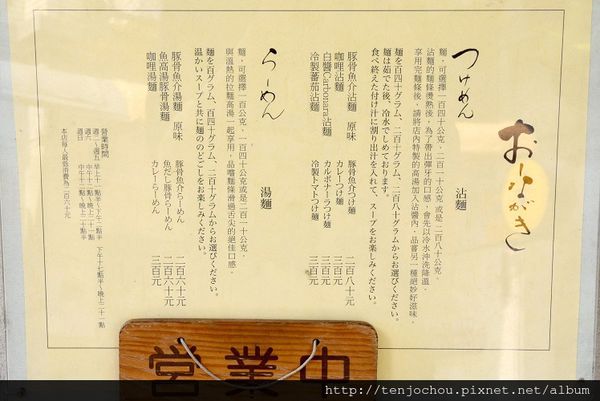 おしながき
つけめん
沾麵
麵，可選擇一百四十公克、二百一十公克或是二百八十公克。
沾麵的麵條燙熟後，為了帶出彈牙的口感，會先以冷水沖洗降溫。
享用完麵條後，請將店內特製的高湯加入沾醬內，品嘗另一種絕妙好滋味。
麺を百四十グラム、二百十グラム、二百八十グラムからお選びください。
麺は茹でた後、冷水でしめております。
食べ終えた付け汁に割り出汁を入れて、スープをお楽しみください。
豚骨魚介沾麵 原味 豚骨魚介つけ麺 二百八十元
咖哩沾麵 カレーつけ麺 三百元
白醬Carbonara沾麵 カルボナーラつけ麺 三百元
冷製蕃茄沾麵 冷製トマトつけ麺 三百元
らーめん
湯麵
麵，可選擇一百公克、一百四十公克或是二百一十公克。
與溫熱的拉麵高湯一起享用，品嚐麵條滑過舌尖的絕佳口感。
麺を百グラム、百四十グラム、二百十グラムからお選びください。
温かいスープと共に麺ののどごしをお楽しみください。
豚骨魚介湯麵 原味 豚骨魚介らーめん 二百六十元
魚高湯豚骨湯麵 魚だし豚骨らーめん 二百六十元
咖哩湯麵 カレーらーめん 三百元
營業時間
週一～週五 早上十一點半～下午二點半 下午十七點半～晚上二十一點
週六 中午十二點～晚上二十一點
週日 中午十二點～晚上二十點半
本店每人最低消費為二百六十元
営業中
http://tenjochou.pixnet.net/album